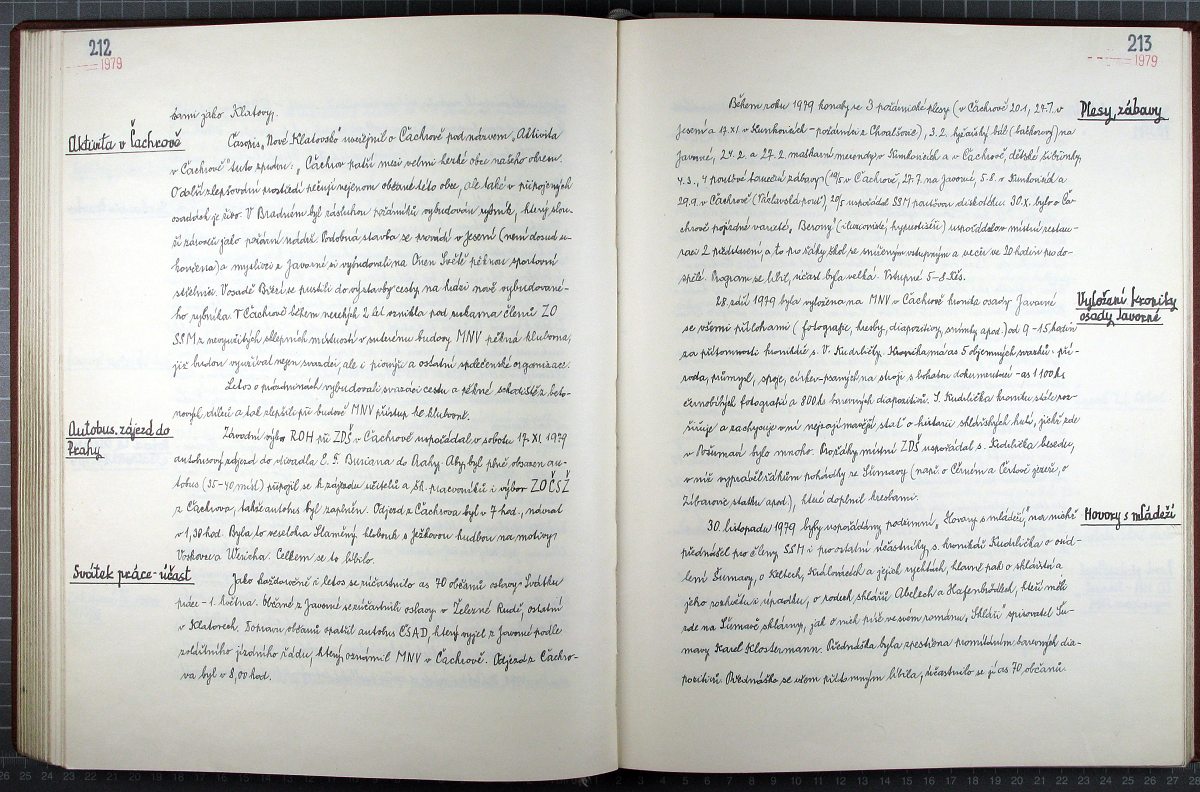 212
1979
bami jako Klatovy.
Aktivita v Čachrově
Časopis „Nové Klatovsko" uveřejnil o Čachrově pod názvem „Aktivita
v Čachrově" tuto zprávu: „Čachrov patří mezi velmi hezké obce našeho okresu.
O další zlepšování prostředí pečují nejenom občané této obce, ale také v připojených
osadách je živo. V Bradném byl zásluhou požárníků vybudován rybník, který slou-
ží zároveň jako požární nádrž. Podobná stavba se provádí v Jesení (není dosud u-
končena) a myslivci z Javorné si vybudovali na Onen Světě pěknou sportovní
střelnici. V osadě Březí se pustili do výstavby cesty na hrázi nově vybudované-
ho rybníka. V Čachrově během necelých 2 let vznikla pod rukama členů ZO
SSM z nevyužitých sklepních místností v suterénu budovy MNV pěkná klubovna,
již budou využívat nejen svazáci, ale i pionýři a ostatní společenské organizace.
Letos o prázdninách vybudovali svazáci cestu a pěkné schodiště z beto-
nových dílců a tak zlepšili při budově MNV přístup ke klubovně.
Autobus. zájezd do
Prahy
Závodní výbor ROH při ZDŠ v Čachrově uspořádal v sobotu 17. XI. 1979
autobusový zájezd do divadla E. F. Buriana do Prahy. Aby byl plně obsazen au-
tobus (35-40 míst) připojil se k zájezdu učitelů a šk. pracovníků i výbor ZO ČSŽ
z Čachrova, takže autobus byl zaplněn. Odjezd z Čachrova byl v 7 hod., návrat
v 1,30 hod. Byla to veselohra Slaměný klobouk s Ježkovou hudbou na motivy
Voskovce a Wericha. Celkem se to líbilo.
Svátek práce - účast
Jako každoročně i letos se zúčastnilo as 70 občanů oslavy Svátku
práce - 1. května. Občané z Javorné se zúčastnili oslavy v Železné Rudě, ostatní
v Klatovech. Dopravu občanů opatřil autobus ČSAD, který vyjel z Javorné podle
zvláštního jízdního řádu, který oznámil MNV v Čachrově. Odjezd z Čachro-
va byl v 8,00 hod.
213
1979
Plesy, zábavy
Během roku 1979 konaly se 3 požárnické plesy (v Čachrově 20.1., 27.1. v
Jesení a 17. XI. v Kunkovicích - požárníci z Chvalšovic), 3.2. lyžařský bál (baškorový) na
Javorné, 24.2. a 27.2. maškarní merendy v Kunkovicích a v Čachrově, dětské šibřinky
4.3., 4 pouťové taneční zábavy (19/5 v Čachrově, 27.7. na Javorné, 5.8. v Kunkovicích a
29.9. v Čachrově (Václavská pouť), 20/5 uspořádal SSM pouťovou diskotéku. 30.X. bylo o Ča-
chrově pojízdné varieté „Berony" (iluzionisté, hypnotisté) uspořádalo v místní restau-
raci 2 představení a to pro žáky škol se sníženým vstupným a večer ve 20 hodin pro do-
spělé. Program se líbil, účast byla velká. Vstupné 5-8 Kčs.
Vyložení kroniky
osady Javorné
28. září 1979 byla vyložena na MNV v Čachrově kronika osady Javorné
se všemi přílohami (fotografie, kresby, diapozitivy, snímky apod.) od 9 - 15 hodin
za přítomnosti kronikáře s. V. Kudrličky. Kronika má as 5 objemných svazků: pří-
roda, průmysl, spoje, církev - psaných na stroji s bohatou dokumentací - as 1100 ks
černobílých fotografií a 800 ks barevných diapozitivů. S. Kudrlička kroniku stále roz-
šiřuje a zachycuje v ní nejzajímavější stať o historii sklářských hutí, jichž zde
v Pošumaví bylo mnoho. Pro žáky místní ZDŠ uspořádal s. Kudrlička besedu,
v níž vyprávěl žákům pohádky ze Šumavy (např. o Černém a Čertově jezeře, o
Žibařovic statku apod.), které doplnil kresbami.
Hovory s mládeží
30. listopadu 1979 byly uspořádány podzimní „Hovory s mládeží" na nichž
přednášel pro členy SSM i pro ostatní účastníky, s. kronikář Kudrlička o osíd-
lení Šumavy, o Keltech, Královácích a jejich rychtách, hlavně pak o sklářství a
jeho rozkvětu i úpadku, o rodech sklářů Abelech a Hafenbrödlech, kteří měli
zde na Šumavě sklárny, jak o nich píše ve svém románu „Skláři" spisovatel Šu-
mavy Karel Klostermann. Přednáška byla zpestřena promítáním barevných dia-
pozitivů. Přednáška se všem přítomným líbila, účastnilo se jí as 70 občanů.